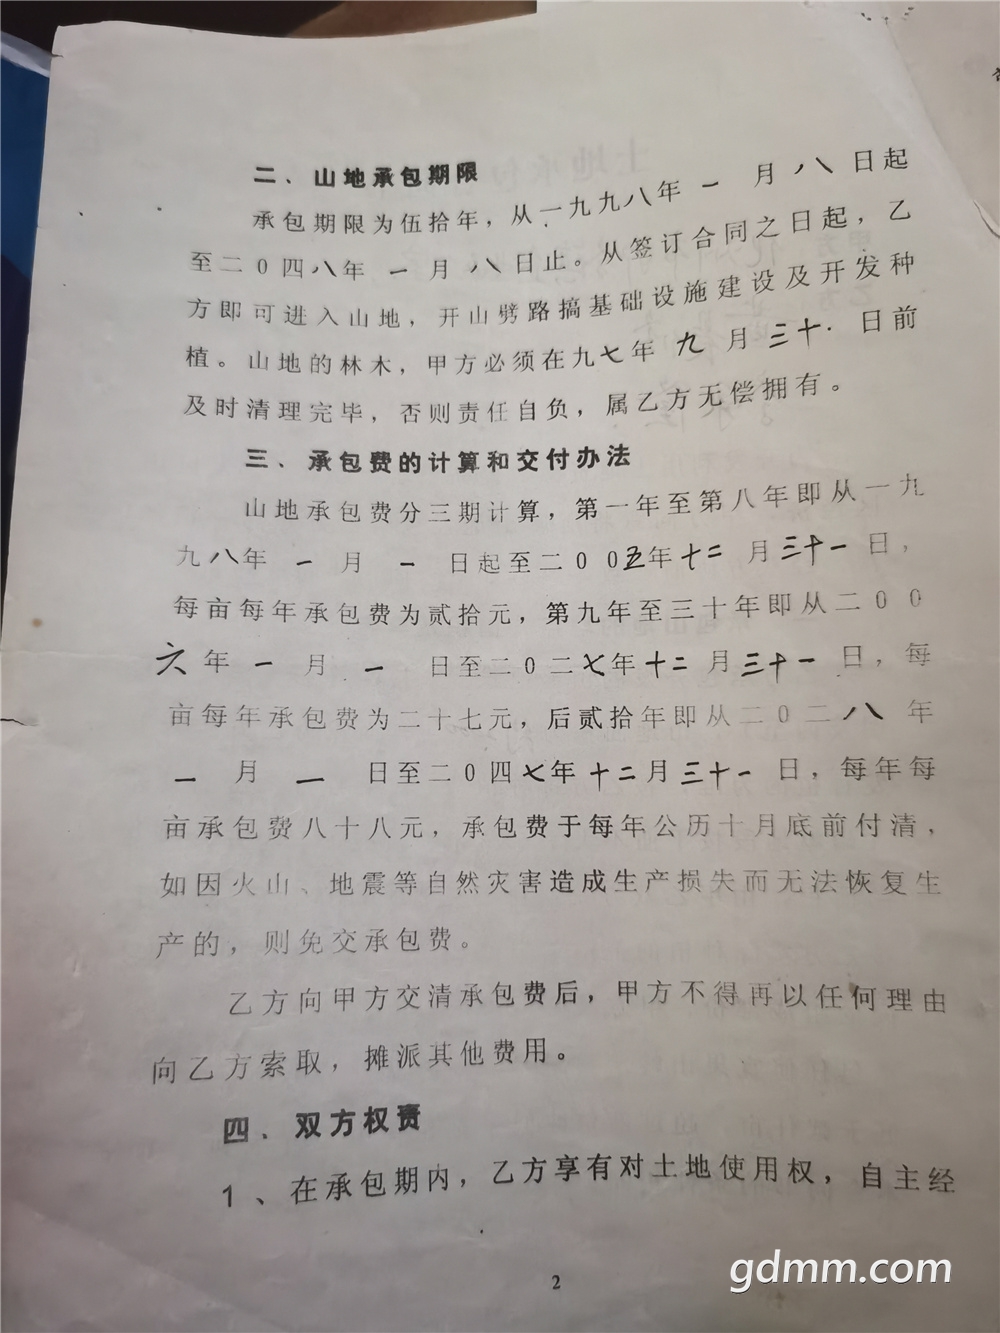 二、山地承包期限
承包期限为伍拾年，从一九九八年一月八日起
至二0四八年一月八日止。从签订合同之日起，乙
方即可进入山地，开山劈路搞基础设施建设及开发种
植。山地的林木，甲方必须在九七年九月三十日前
及时清理完毕，否则责任自负，属乙方无偿拥有。
三、承包费的计算和交付办法
山地承包费分三期计算，第一年至第八年即从一九
九八年一月一日起至二00五年十二月三十一日，
每亩每年承包费为贰拾元，第九年至三十年即从二00
六年一月一日至二0二七年十二月三十一日，每
亩每年承包费为二十七元，后贰拾年即从二0二八年
一月一日至二0四七年十二月三十一日，每年每
亩承包费八十八元，承包费于每年公历十月底前付清，
如因火山、地震等自然灾害造成生产损失而无法恢复生
产的，则免交承包费。
乙方向甲方交清承包费后，甲方不得再以任何理由
向乙方索取，摊派其他费用。
四、双方权责
1、在承包期内，乙方享有对土地使用权，自主经
2
gdmm.com